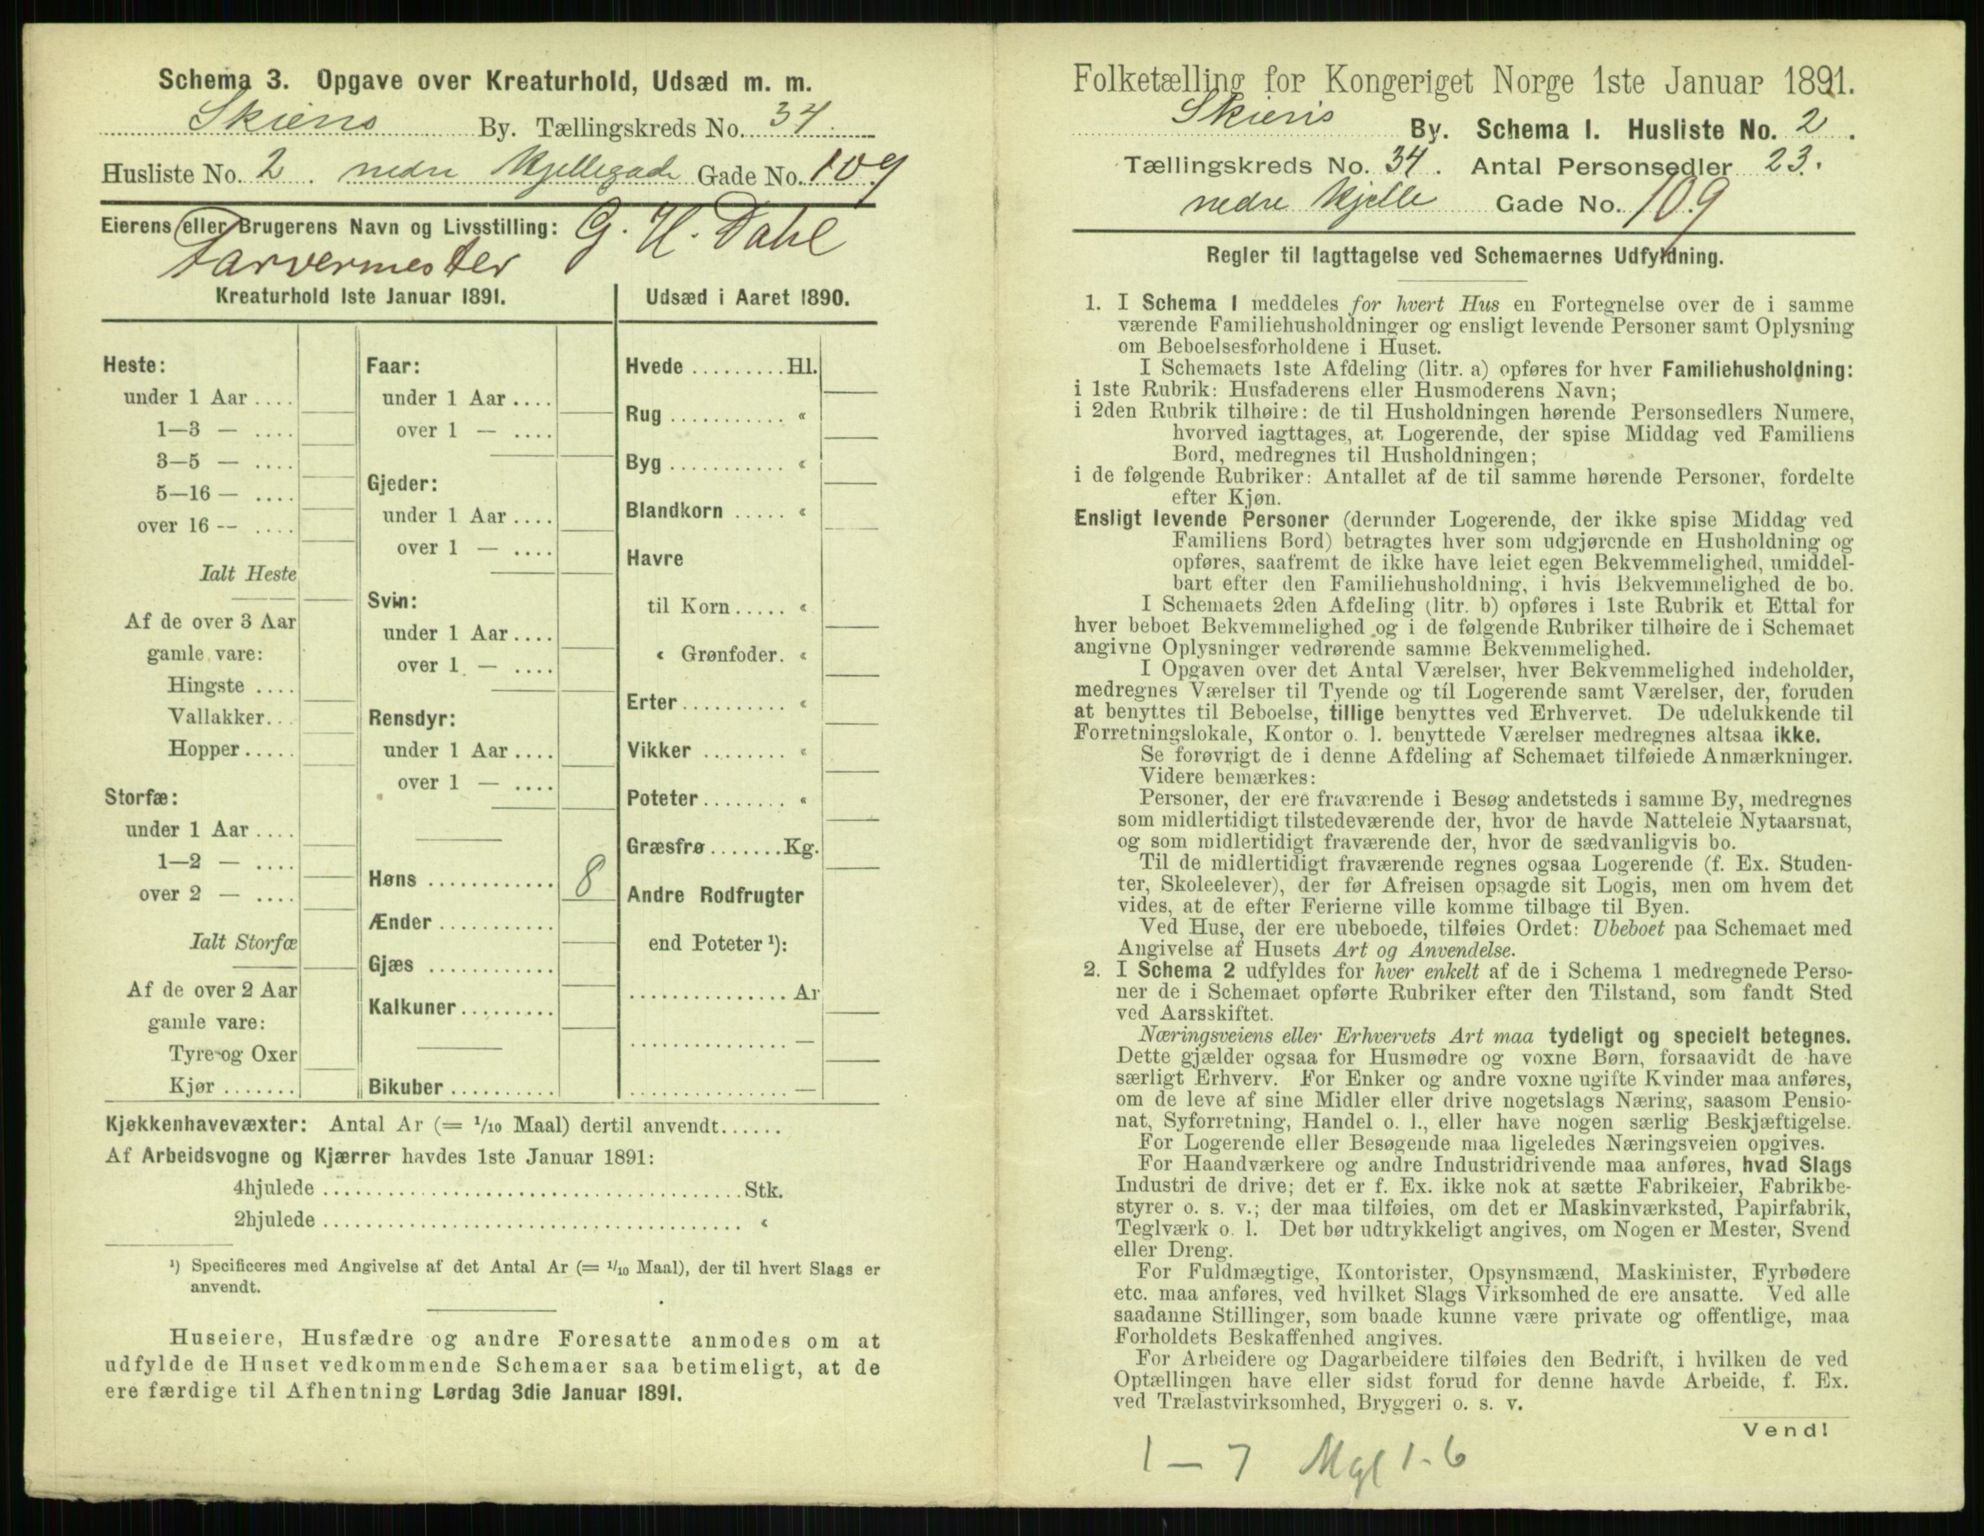 Schema 3. Opgave over Kreaturhold, Udsæd m. m.
Skiens By. Tællingskreds No. 34.
Husliste No. 2. nedre Hjellegade Gade No. 109
Eierens eller Brugerens Navn og Livsstilling: G. H. Dahl
Farvermester
Kreaturhold 1ste Januar 1891.
Heste:
under 1 Aar ....
1—3 — ....
3—5 — ....
5—16 — ....
over 16 -- ....
Ialt Heste
Af de over 3 Aar
gamle vare:
Hingste ....
Vallakker...
Hopper .....
Storfæ:
under 1 Aar ....
1—2 — ....
over 2 — ....
Ialt Storfæ
Af de over 2 Aar
gamle vare:
Tyre og Oxer
Kjør .......
Faar:
under 1 Aar ....
over 1 — ....
Gjeder:
under 1 Aar ....
over 1 — ....
Svin:
under 1 Aar ....
over 1 — ....
Rensdyr:
under 1 Aar ....
over 1 — ....
Høns ............ 8
Ænder ...........
Gjæs ............
Kalkuner.........
Bikuber ..........
Udsæd i Aaret 1890.
Hvede .........Hl.
Rug ........... «
Byg ........... «
Blandkorn ..... «
Havre
til Korn ..... «
« Grønfoder. «
Erter.......... «
Vikker ........ «
Poteter........ «
Græsfrø .......Kg.
Andre Rodfrugter
end Poteter ¹):
............... Ar
............... —
............... —
Kjøkkenhavevæxter: Antal Ar (= 1/10 Maal) dertil anvendt......
Af Arbeidsvogne og Kjærrer havdes 1ste Januar 1891:
4hjulede ......................................Stk.
2hjulede ...................................... «
¹) Specificeres med Angivelse af det Antal Ar (= 1/10 Maal), der til hvert Slags er
anvendt.
Huseiere, Husfædre og andre Foresatte anmodes om at
udfylde de Huset vedkommende Schemaer saa betimeligt, at de
ere færdige til Afhentning Lørdag 3die Januar 1891.
Folketælling for Kongeriget Norge 1ste Januar 1891.
Skiens By. Schema I. Husliste No. 2.
Tællingskreds No. 34. Antal Personsedler 23.
nedre Hjelle Gade No. 109
Regler til Iagttagelse ved Schemaernes Udfyldning.
1. I Schema I meddeles for hvert Hus en Fortegnelse over de i samme
værende Familiehusholdninger og ensligt levende Personer samt Oplysning
om Beboelsesforholdene i Huset.
I Schemaets 1ste Afdeling (litr. a) opføres for hver Familiehusholdning:
i 1ste Rubrik: Husfaderens eller Husmoderens Navn;
i 2den Rubrik tilhøire: de til Husholdningen hørende Personsedlers Numere,
hvorved iagttages, at Logerende, der spise Middag ved Familiens
Bord, medregnes til Husholdningen;
i de følgende Rubriker: Antallet af de til samme hørende Personer, fordelte
efter Kjøn.
Ensligt levende Personer (derunder Logerende, der ikke spise Middag ved
Familiens Bord) betragtes hver som udgjørende en Husholdning og
opføres, saafremt de ikke have leiet egen Bekvemmelighed, umiddel-
bart efter den Familiehusholdning, i hvis Bekvemmelighed de bo.
I Schemaets 2den Afdeling (litr. b) opføres i 1ste Rubrik et Ettal for
hver beboet Bekvemmelighed og i de følgende Rubriker tilhøire de i Schemaet
angivne Oplysninger vedrørende samme Bekvemmelighed.
I Opgaven over det Antal Værelser, hver Bekvemmelighed indeholder,
medregnes Værelser til Tyende og til Logerende samt Værelser, der, foruden
at benyttes til Beboelse, tillige benyttes ved Erhvervet. De udelukkende til
Forretningslokale, Kontor o. l. benyttede Værelser medregnes altsaa ikke.
Se forøvrigt de i denne Afdeling af Schemaet tilføiede Anmærkninger.
Videre bemærkes:
Personer, der ere fraværende i Besøg andetsteds i samme By, medregnes
som midlertidigt tilstedeværende der, hvor de havde Natteleie Nytaarsnat,
og som midlertidigt fraværende der, hvor de sædvanligvis bo.
Til de midlertidigt fraværende regnes ogsaa Logerende (f. Ex. Studen-
ter, Skoleelever), der før Afreisen opsagde sit Logis, men om hvem det
vides, at de efter Ferierne ville komme tilbage til Byen.
Ved Huse, der ere ubeboede, tilføies Ordet: Ubeboet paa Schemaet med
Angivelse af Husets Art og Anvendelse.
2. I Schema 2 udfyldes for hver enkelt af de i Schema 1 medregnede Perso-
ner de i Schemaet opførte Rubriker efter den Tilstand, som fandt Sted
ved Aarsskiftet.
Næringsveiens eller Erhvervets Art maa tydeligt og specielt betegnes.
Dette gjælder ogsaa for Husmødre og voxne Børn, forsaavidt de have
særligt Erhverv. For Enker og andre voxne ugifte Kvinder maa anføres,
om de leve af sine Midler eller drive nogetslags Næring, saasom Pensio-
nat, Syforretning, Handel o. l., eller have nogen særlig Beskjæftigelse.
For Logerende eller Besøgende maa ligeledes Næringsveien opgives.
For Haandværkere og andre Industridrivende maa anføres, hvad Slags
Industri de drive; det er f. Ex. ikke nok at sætte Fabrikeier, Fabrikbe-
styrer o. s. v.; der maa tilføies, om det er Maskinværksted, Papirfabrik,
Teglværk o. l. Det bør udtrykkeligt angives, om Nogen er Mester, Svend
eller Dreng.
For Fuldmægtige, Kontorister, Opsynsmænd, Maskinister, Fyrbødere
etc. maa anføres, ved hvilket Slags Virksomhed de ere ansatte. Ved alle
saadanne Stillinger, som baade kunne være private og offentlige, maa
Forholdets Beskaffenhed angives.
For Arbeidere og Dagarbeidere tilføies den Bedrift, i hvilken de ved
Optællingen have eller sidst forud for denne havde Arbeide, f. Ex.
ved Trælastvirksomhed, Bryggeri o. s. v.
Vend!
1 — 7 Mgl 1-6